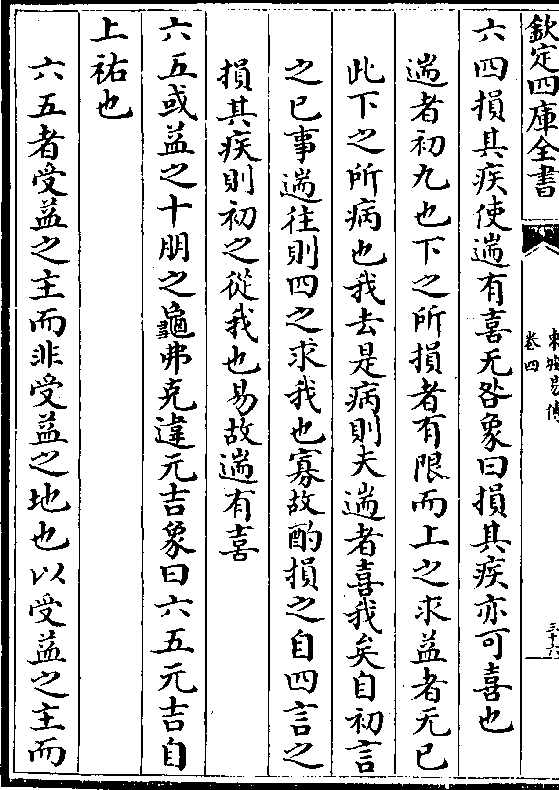 欽定四庫全書
東坡易傳
卷四
三十六
六四損其疾使遄有喜无咎象曰損其疾亦可喜也
遄者初九也下之所損者有限而上之求益者无已
此下之所病也我去是病則夫遄者喜我矣自初言
之已事遄往則四之求我也寡故酌損之自四言之
損其疾則初之從我也易故遄有喜
六五或益之十朋之龜弗克違元吉象曰六五元吉自
上祐也
六五者受益之主而非受益之地也以受益之主而